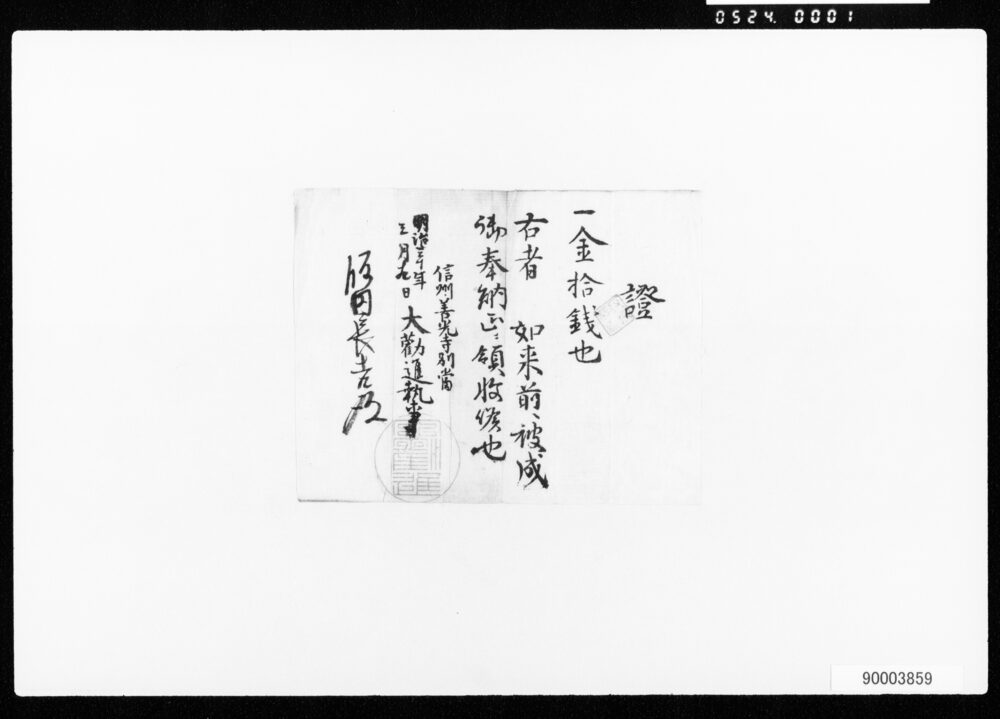 0524 0001
證
一金拾銭也
右者 如来前へ被成
御奉納正ニ領收候也
信州善光寺別當
明治三十年
三月九日 大勸進執事
飯田長吉殿
90003859